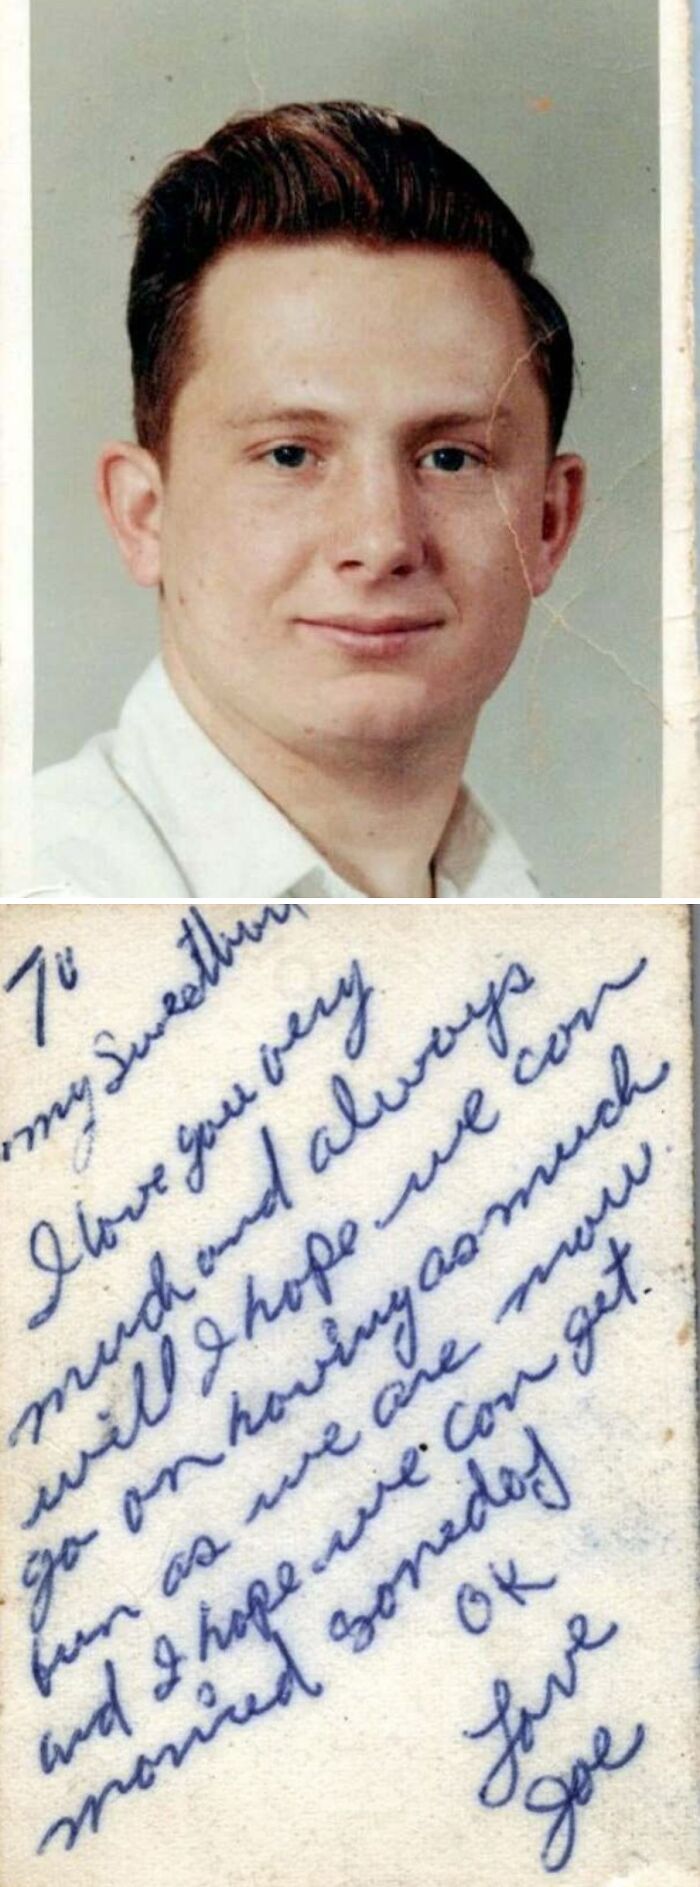 To
my Sweetheart
I love you very
much and always
will I hope we can
go on having as much
fun as we are now
and I hope we can get.
married someday
OK
Love
Joe